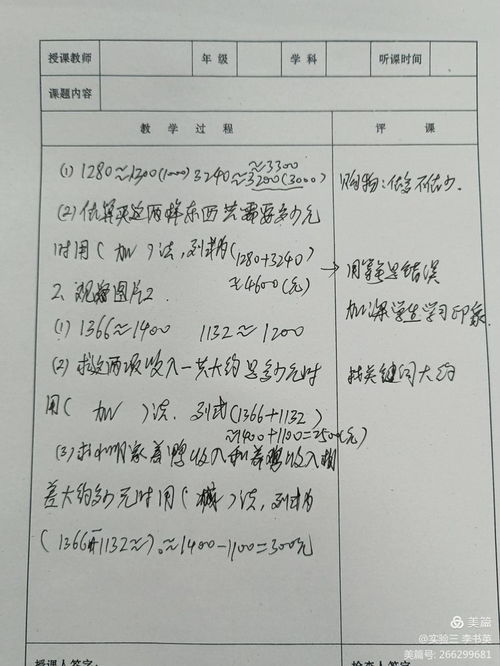 授课教师 年级 学科 听课时间
课题内容
教学过程 评课
≈3300
(1) 1280≈1300(1000) 3240≈3200(3000) 购物:估多不估少.
(2) 估算买这两样东西共需要多少元
时用( 加 )法,列式为(1280+3240)
≈4600(元)
→ 用等号是错误
加深学生学习印象
2、观察图片2.
(1) 1366≈1400 1132≈1200
(2) 求这两项收入一共大约是多少元时 找关键词大约
用( 加 )法.列式(1366+1132)
≈1400+1100=2500(元)
(3) 求小明家养鸭收入和养鸡收入相
差大约多少元时用( 减 )法,列式为
(1366-1132≈)。≈1400-1100=300元
授课人签字: 检查人签字:
美篇
@实验三 李书英
美篇号: 266299681